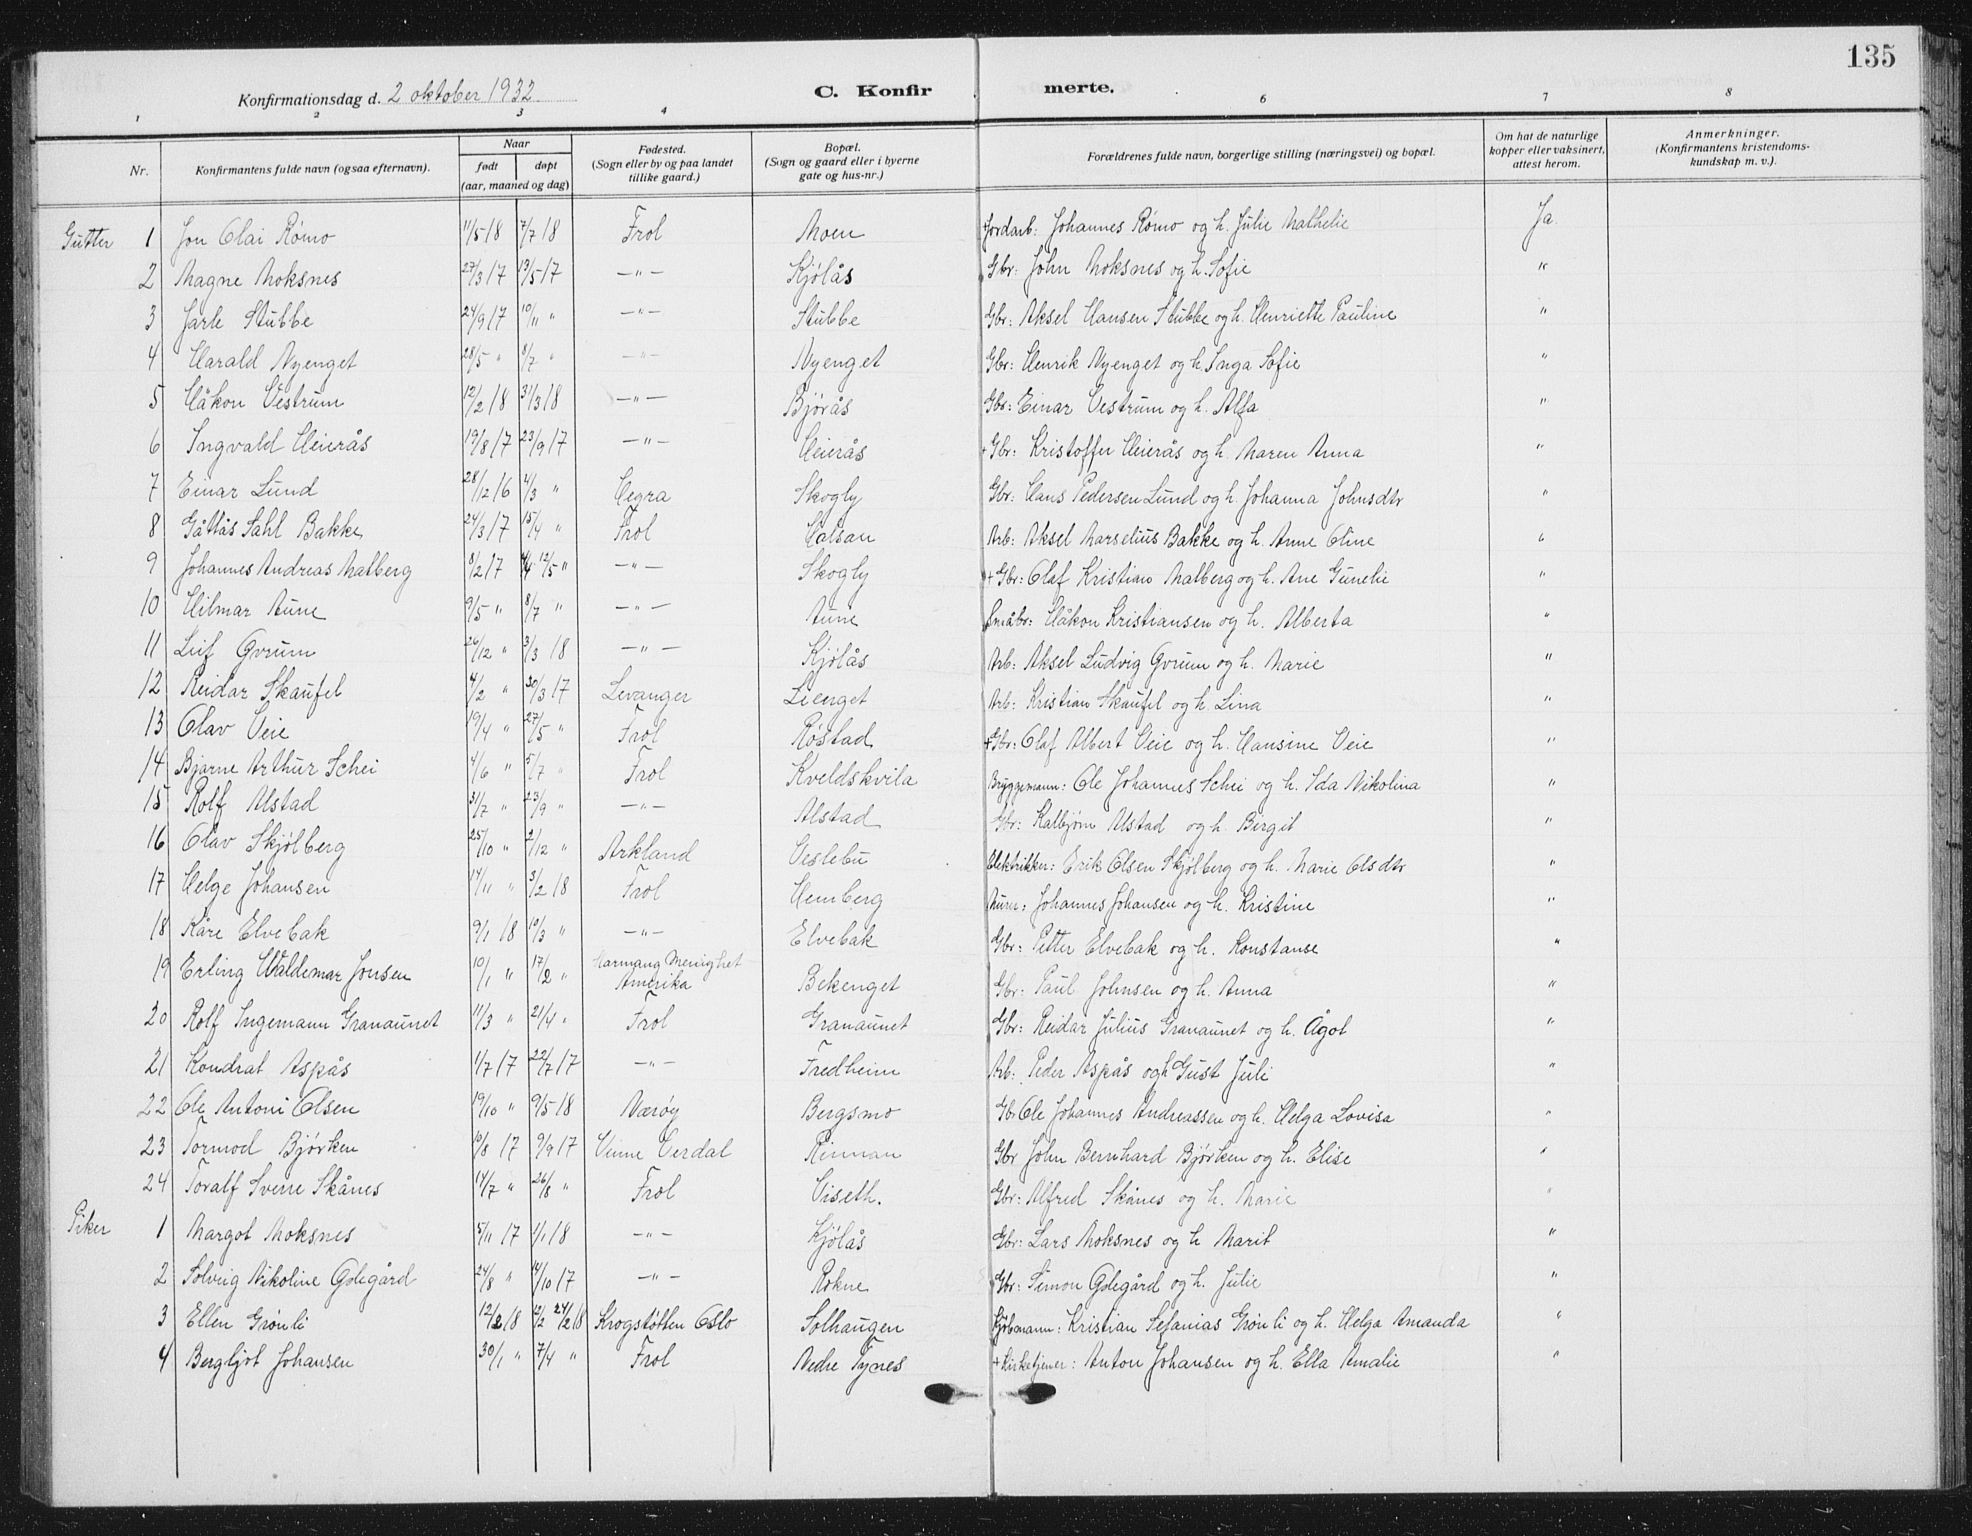 135
Konfirmationsdag d. 2 oktober 1932
C. Konfirmerte.
1 2 3 4 6 7 8
Nr. Konfirmantens fulde navn (ogsaa efternavn). Naar født døpt (aar, maaned og dag) Fødested. (Sogn eller by og paa landet tillike gaard.) Bopæl. (Sogn og gaard eller i byerne gate og hus-nr.) Forældrenes fulde navn, borgerlige stilling (næringsvei) og bopæl. Om hat de naturlige kopper eller vaksinert, attest herom. Anmerkninger. (Konfirmantens kristendomskundskap m. v.).
Gutter 1 Jon Olai Rømo 11/5 18 7/7 18 Frol Moen +Jordarb: Johannes Rømo og h. Julie Mathelie Ja
2 Magne Moksnes 27/3 17 13/5 17 —"— Kjølås Gbr: John Moksnes og h. Sofie "
3 Jarle Stubbe 24/9 17 10/11 " —"— Stubbe Gbr: Aksel Hansen Stubbe og h. Henriette Pauline "
4 Harald Nyenget 28/5 " 8/7 " —"— Nyenget Gbr: Henrik Nyenget og h. Inga Sofie "
5 Håkon Vestrum 12/2 18 31/3 18 —"— Bjørås Gbr: Einar Vestrum og h. Alfa "
6 Ingvald Heierås 19/8 17 23/9 17 —"— Heierås +Gbr: Kristoffer Heierås og h. Maren Anna "
7 Einar Lund 28/12 16 4/3 " Hegra Skogly Gbr: Hans Pedersen Lund og h. Johanna Johnsdtr "
8 Gåttås Sahl Bakke 24/3 17 15/4 " Frol Halsan Arb: Aksel Marselius Bakke og h. Anne Oline "
9 Johannes Andreas Malberg 8/2 17 12/5 " —"— Skogly +Gbr: Olaf Kristian Malberg og h. Ane Gunelie "
10 Hilmar Aune 9/5 " 8/7 " —"— Aune Småbr: Håkon Kristiansen og h. Alberta "
11 Leif Gvrum 26/12 " 3/3 18 —"— Kjølås Arb: Aksel Ludvig Gvrum og h. Marie "
12 Reidar Skaufel 4/2 " 30/3 17 Levanger Lienget Arb: Kristian Skaufel og h. Lina "
13 Olav Veie 19/4 " 27/5 " Frol Røstad +Gbr: Olaf Albert Veie og h. Hansine Veie "
14 Bjarne Arthur Schei 4/6 " 5/7 " Frol Kveldskvila Bryggemann: Ole Johannes Schei og h. Ida Nikolina "
15 Rolf Alstad 3/7 " 23/9 " —"— Alstad Gbr: Kalbjørn Alstad og h. Bergit "
16 Olav Skjølberg 25/10 " 2/12 " Arkland Veslebu Elektriker: Erik Olsen Skjølberg og h. Marie Olsdtr "
17 Helge Johansen 14/11 " 3/2 18 Frol Hemberg Murer: Johannes Johansen og h. Kristine "
18 Kåre Elvebak 9/1 18 10/3 " —"— Elvebak Gbr: Petter Elvebak og h. Konstanse "
19 Erling Waldemar Jonsen 10/1 " 17/2 " Harmang Menighet Amerika Bekenget Gbr: Paul Johnsen og h. Anna "
20 Rolf Ingemann Granaunet 11/3 " 21/4 " Frol Granaunet Gbr: Reidar Julius Granaunet og h. Ågot "
21 Kondrat Aspås 1/7 17 22/7 17 —"— Fredheim Arb: Peder Aspås og h Gust Juli "
22 Ole Antoni Olsen 19/10 " 9/5 18 Nærøy Bergsmo Gbr Ole Johannes Andreassen og h. Helga Lovisa "
23 Tormod Bjørken 10/8 17 9/9 17 Vinne Verdal Rinnan Gbr John Bernhard Bjørken og h. Elise "
24 Toralf Sverre Skånes 14/7 " 26/8 " Frol Viseth. Gbr: Alfred Skånes og h. Marie "
Piker 1 Margot Moksnes 5/11 17 1/1 18 —"— Kjølås Gbr: Lars Moksnes og h Marit "
2 Solveig Nikoline Golegård 24/8 " 14/10 17 —"— Røkne +Gbr: Simon Golegård og h. Julie "
3 Ellen Grønli 12/2 18 24/2 18 Krogstøtten Oslo Solhaugen Kjøbmann: Kristian Sefanias Grønli og h. Helga Amanda "
4 Bergljot Johansen 30/1 " 7/4 " Frol Nedre Tynes +Kirketjener: Anton Johansen og h. Ella Amalie "